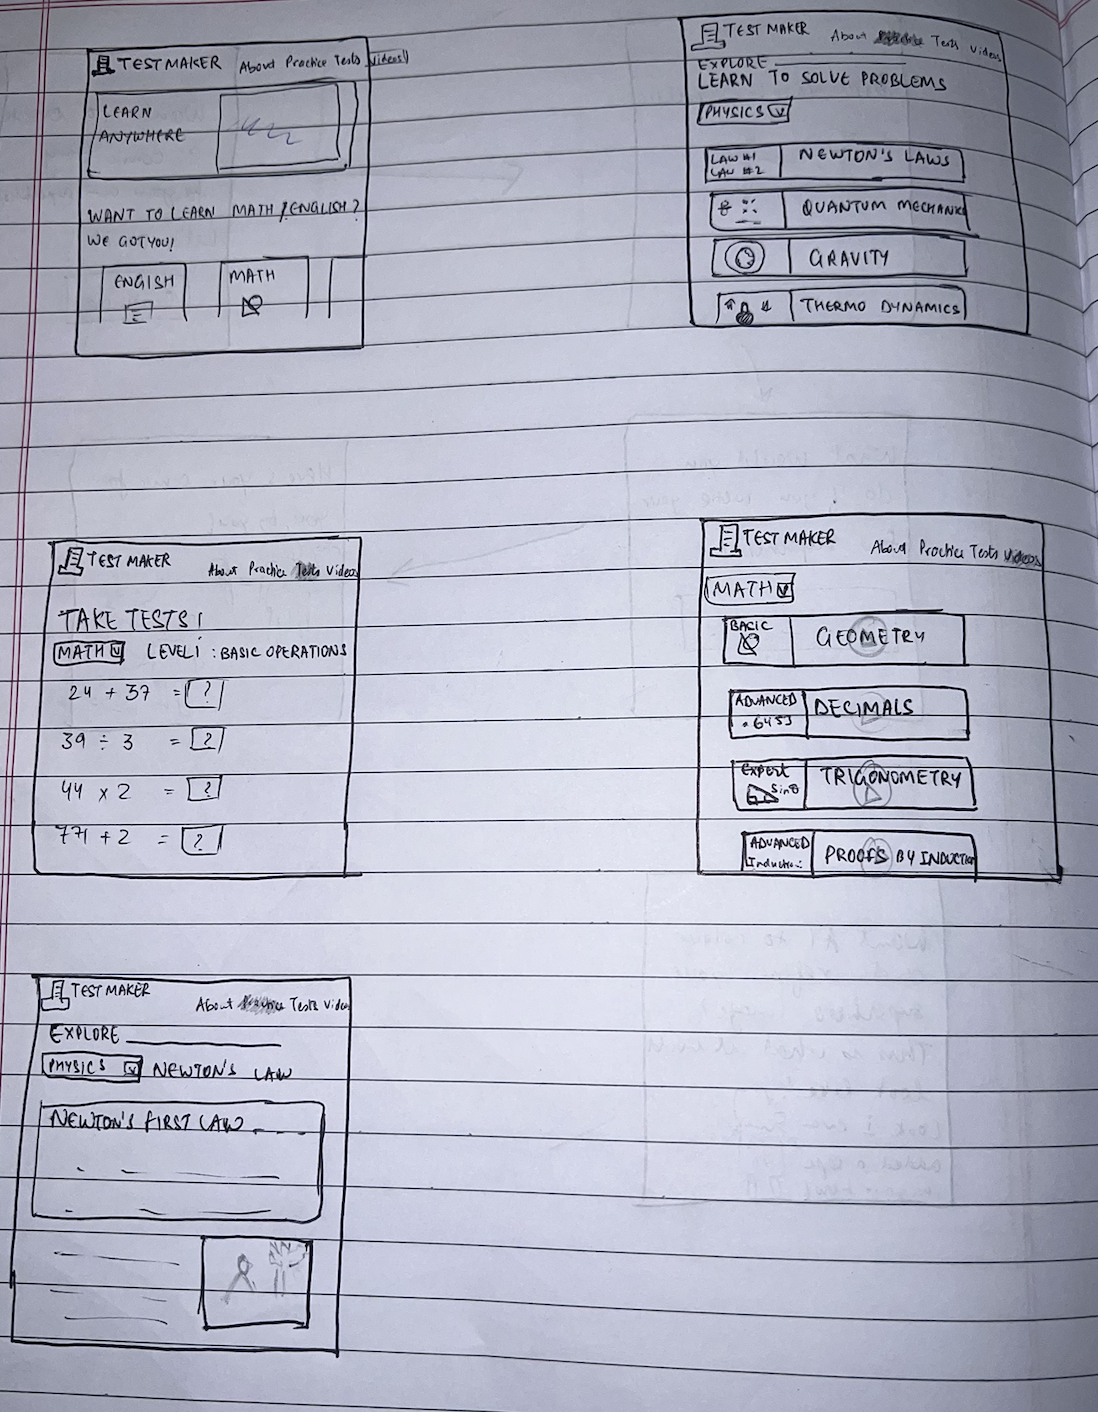 TEST MAKER About Practice Tests Videos
LEARN
ANYWHERE
WANT TO LEARN MATH / ENGLISH?
WE GOT YOU!
ENGISH
MATH
TEST MAKER About Practice Tests Videos
EXPLORE
LEARN TO SOLVE PROBLEMS
PHYSICS
LAW #1
LAW #2
NEWTON'S LAWS
QUANTUM MECHANK
GRAVITY
THERMO DYNAMICS
TEST MAKER
About Practice Tests Videos
TAKE TESTS!
MATH LEVEL1 : BASIC OPERATIONS
24 + 37 = ?
39 ÷ 3 = ?
44 x 2 = ?
771 + 2 = ?
TEST MAKER
About Practice Tests Videos
MATH
BASIC
GEOMETRY
ADVANCED
.6453
DECIMALS
Expert
Sinθ
TRIGONOMETRY
ADVANCED
Induction
PROOFS BY INDUCTION
TEST MAKER
About Practice Tests Videos
EXPLORE
PHYSICS NEWTON'S LAW
NEWTON'S FIRST LAW